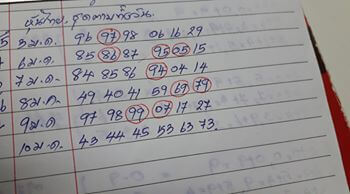 หุ้นไทย. ชุดตามทั้งวัน.
5 ม.ค. 96 97 98 06 16 29
6 ม.ค. 85 86 87 95 05 15
7 ม.ค. 84 85 86 94 04 14
8 ม.ค 49 40 41 59 69 79
9 ม.ค 97 98 99 07 17 27
10 ม.ค. 43 44 45 53 63 73.